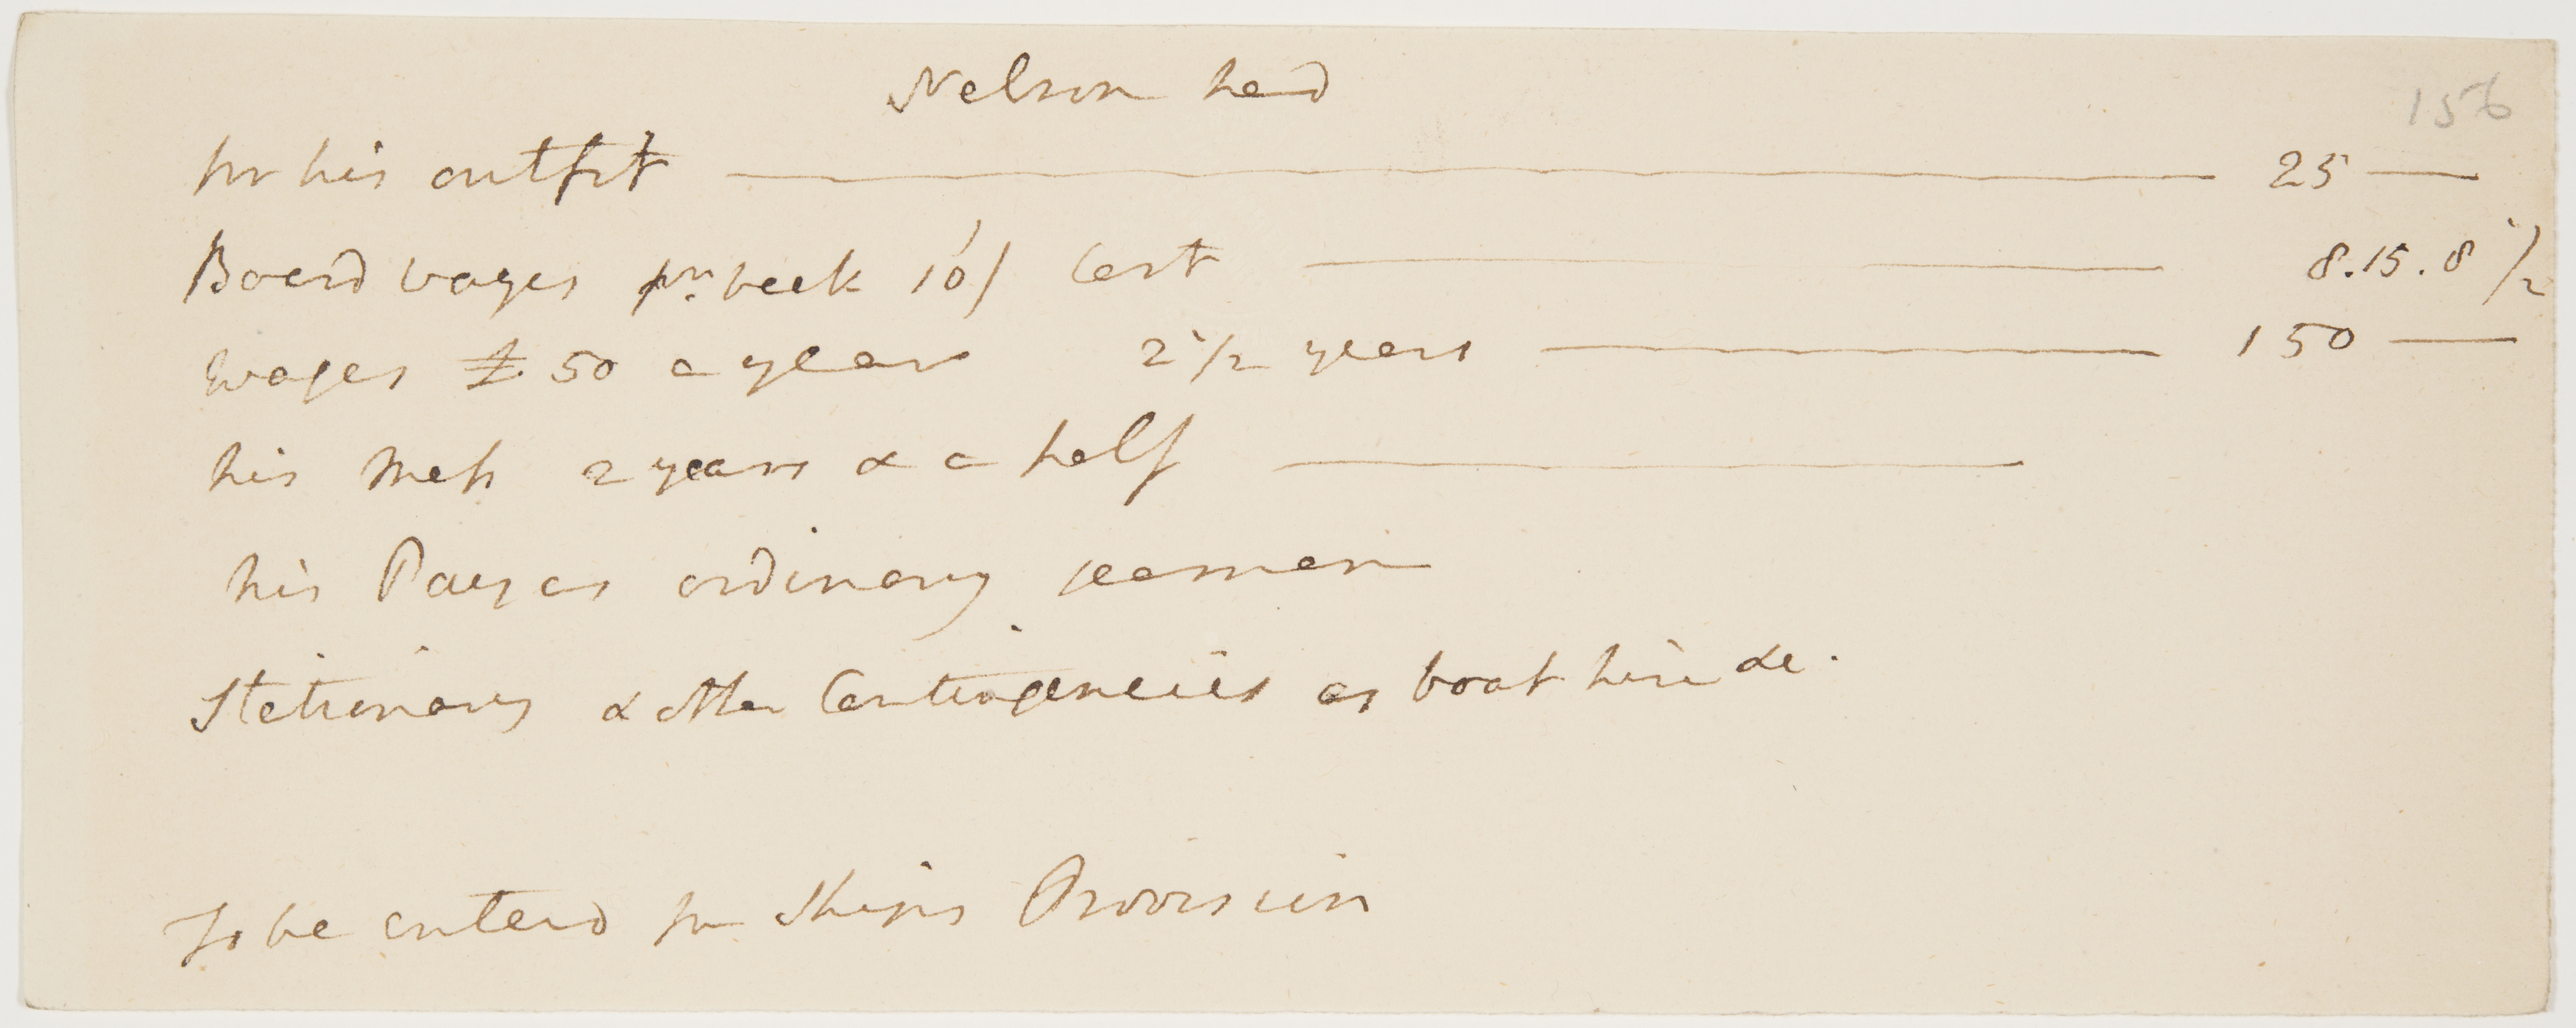 Nelson head
156
for his outfit 25
Board wages pr. week 10/ Cost 8.15.8 1/2
wages £50 a year 2 1/2 years 150
his Mess 2 years & a half
his Pay as ordinary seaman
Stationary & other Contingencies as boat hire &c.
To be enterd for Ships Provision